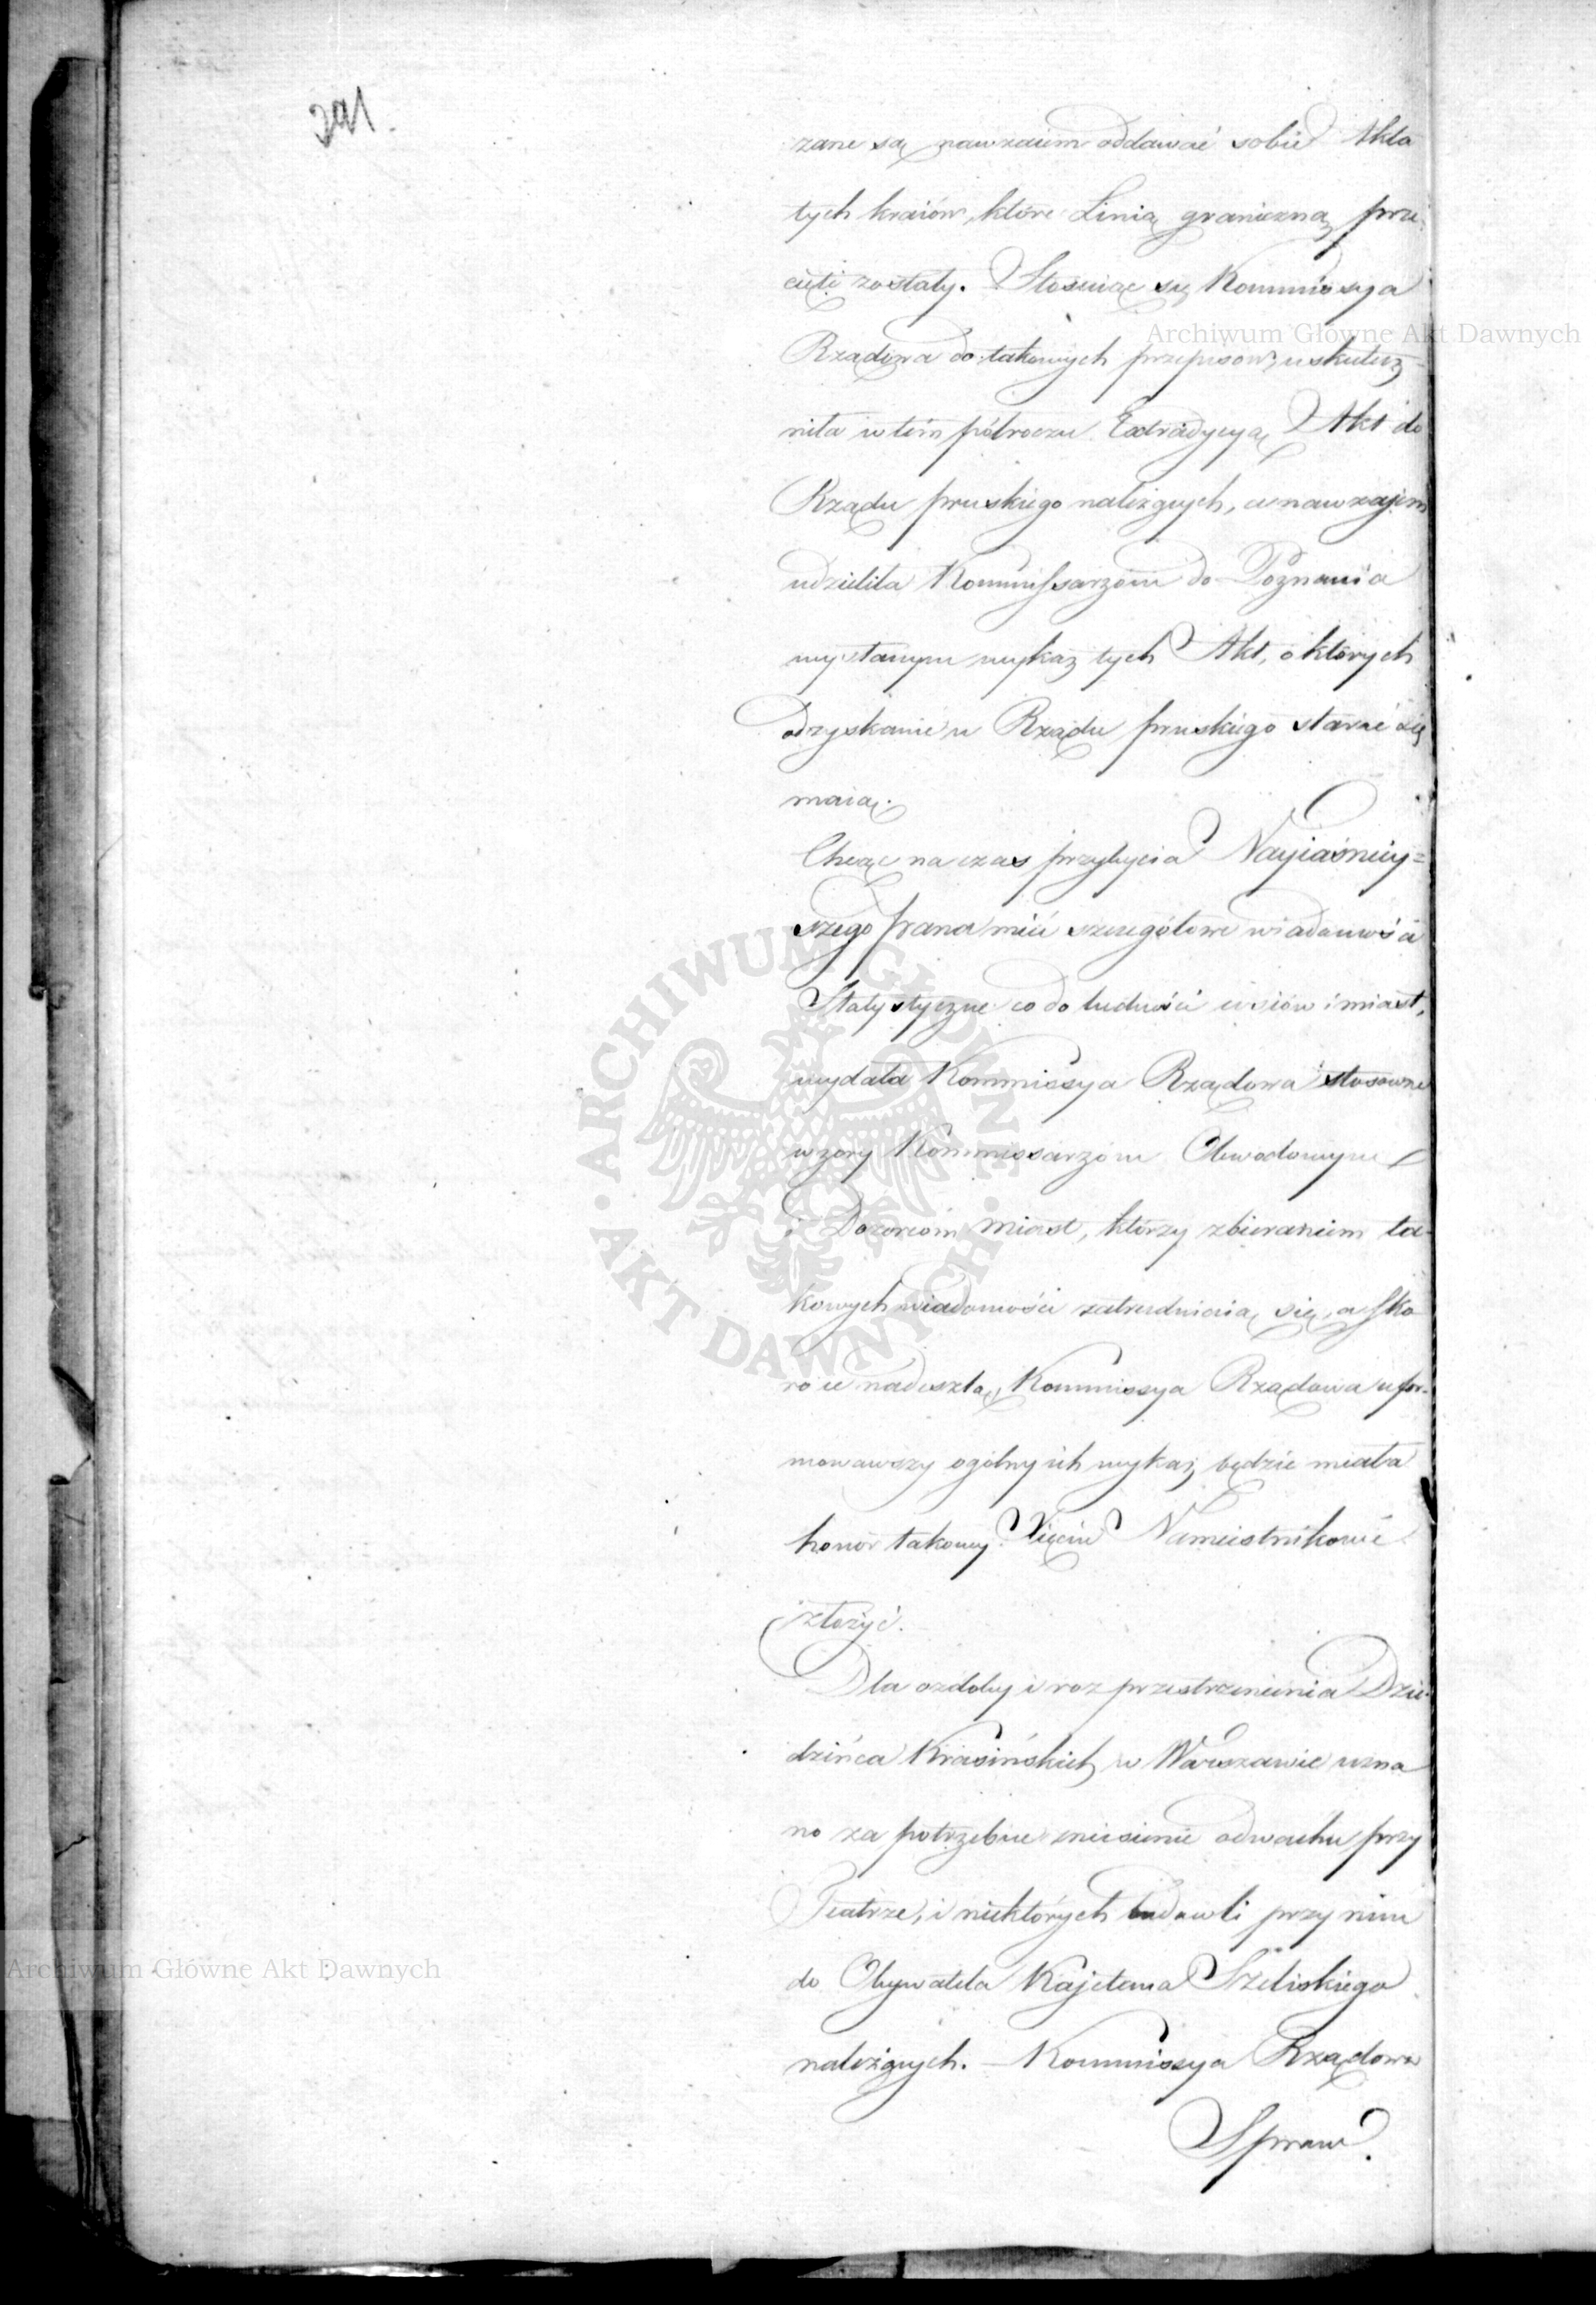 291.
zane są nawzaiem oddawać sobie Akta
tych kraiów, które Linią graniczną prze
cięte zostały. Stosuiąc się Kommissya
Archiwum Główne Akt Dawnych
Rządowa do takowych przepisów, uskutecz
niła w tém półroczu Extradycyą Akt do
Rządu pruskiego należących, a nawzajem
udzieliła Kommissarzom do Poznania
wysłanym wykaz tych Akt, o których
odzyskanie u Rządu pruskiego starać się
maią.
Chcąc na czas przybycia Nayiaśniey=
szego pana mieć szczegółowe wiadomości
Statystyczne co do ludności wsiów i miast,
wydała Kommissya Rządowa stosowne
wzory Kommissarzom Obwodowym
i Dozorcom miast, którzy zbieraniem ta-
kowych wiadomości zatrudniaią się, a sko
ro te nadeszłą, Kommissya Rządowa ufor-
mowawszy ogólny ich wykaz, będzie miała
honor takowy Xięciu Namiestnikowi
złożyć.
Dla ozdoby i rozprzestrzenienia Dzie-
dzińca Krasińskich w Warszawie uzna
no za potrzebne zniesienie odwachu przy
Teatrze, i niektórych budowli przy nim
do Obywatela Kajetana Szeliskiego
należących. — Kommissya Rządowa
Spraw
ARCHIWUM GŁÓWNE AKT DAWNYCH
Archiwum Główne Akt Dawnych